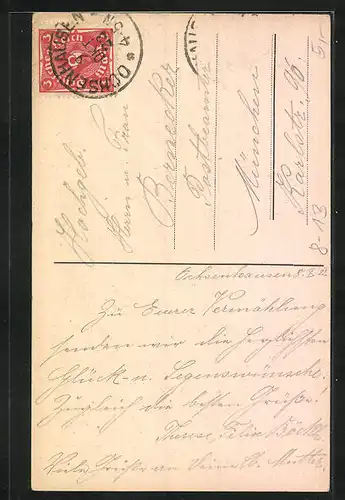 OCHSENHAUSEN
Hochgeb.
Herrn u. Frau
Bernecker
Postbeamter
München
Karlstr. 96.
813
Ochsenhausen 8.8.22
Zu Eurer Vermählung
senden wir die herzlichsten
Glück- u. Segenswünsche!
Zugleich die besten Grüße!
Therese, Felix
Viele Grüße an Deine lb. Mutter